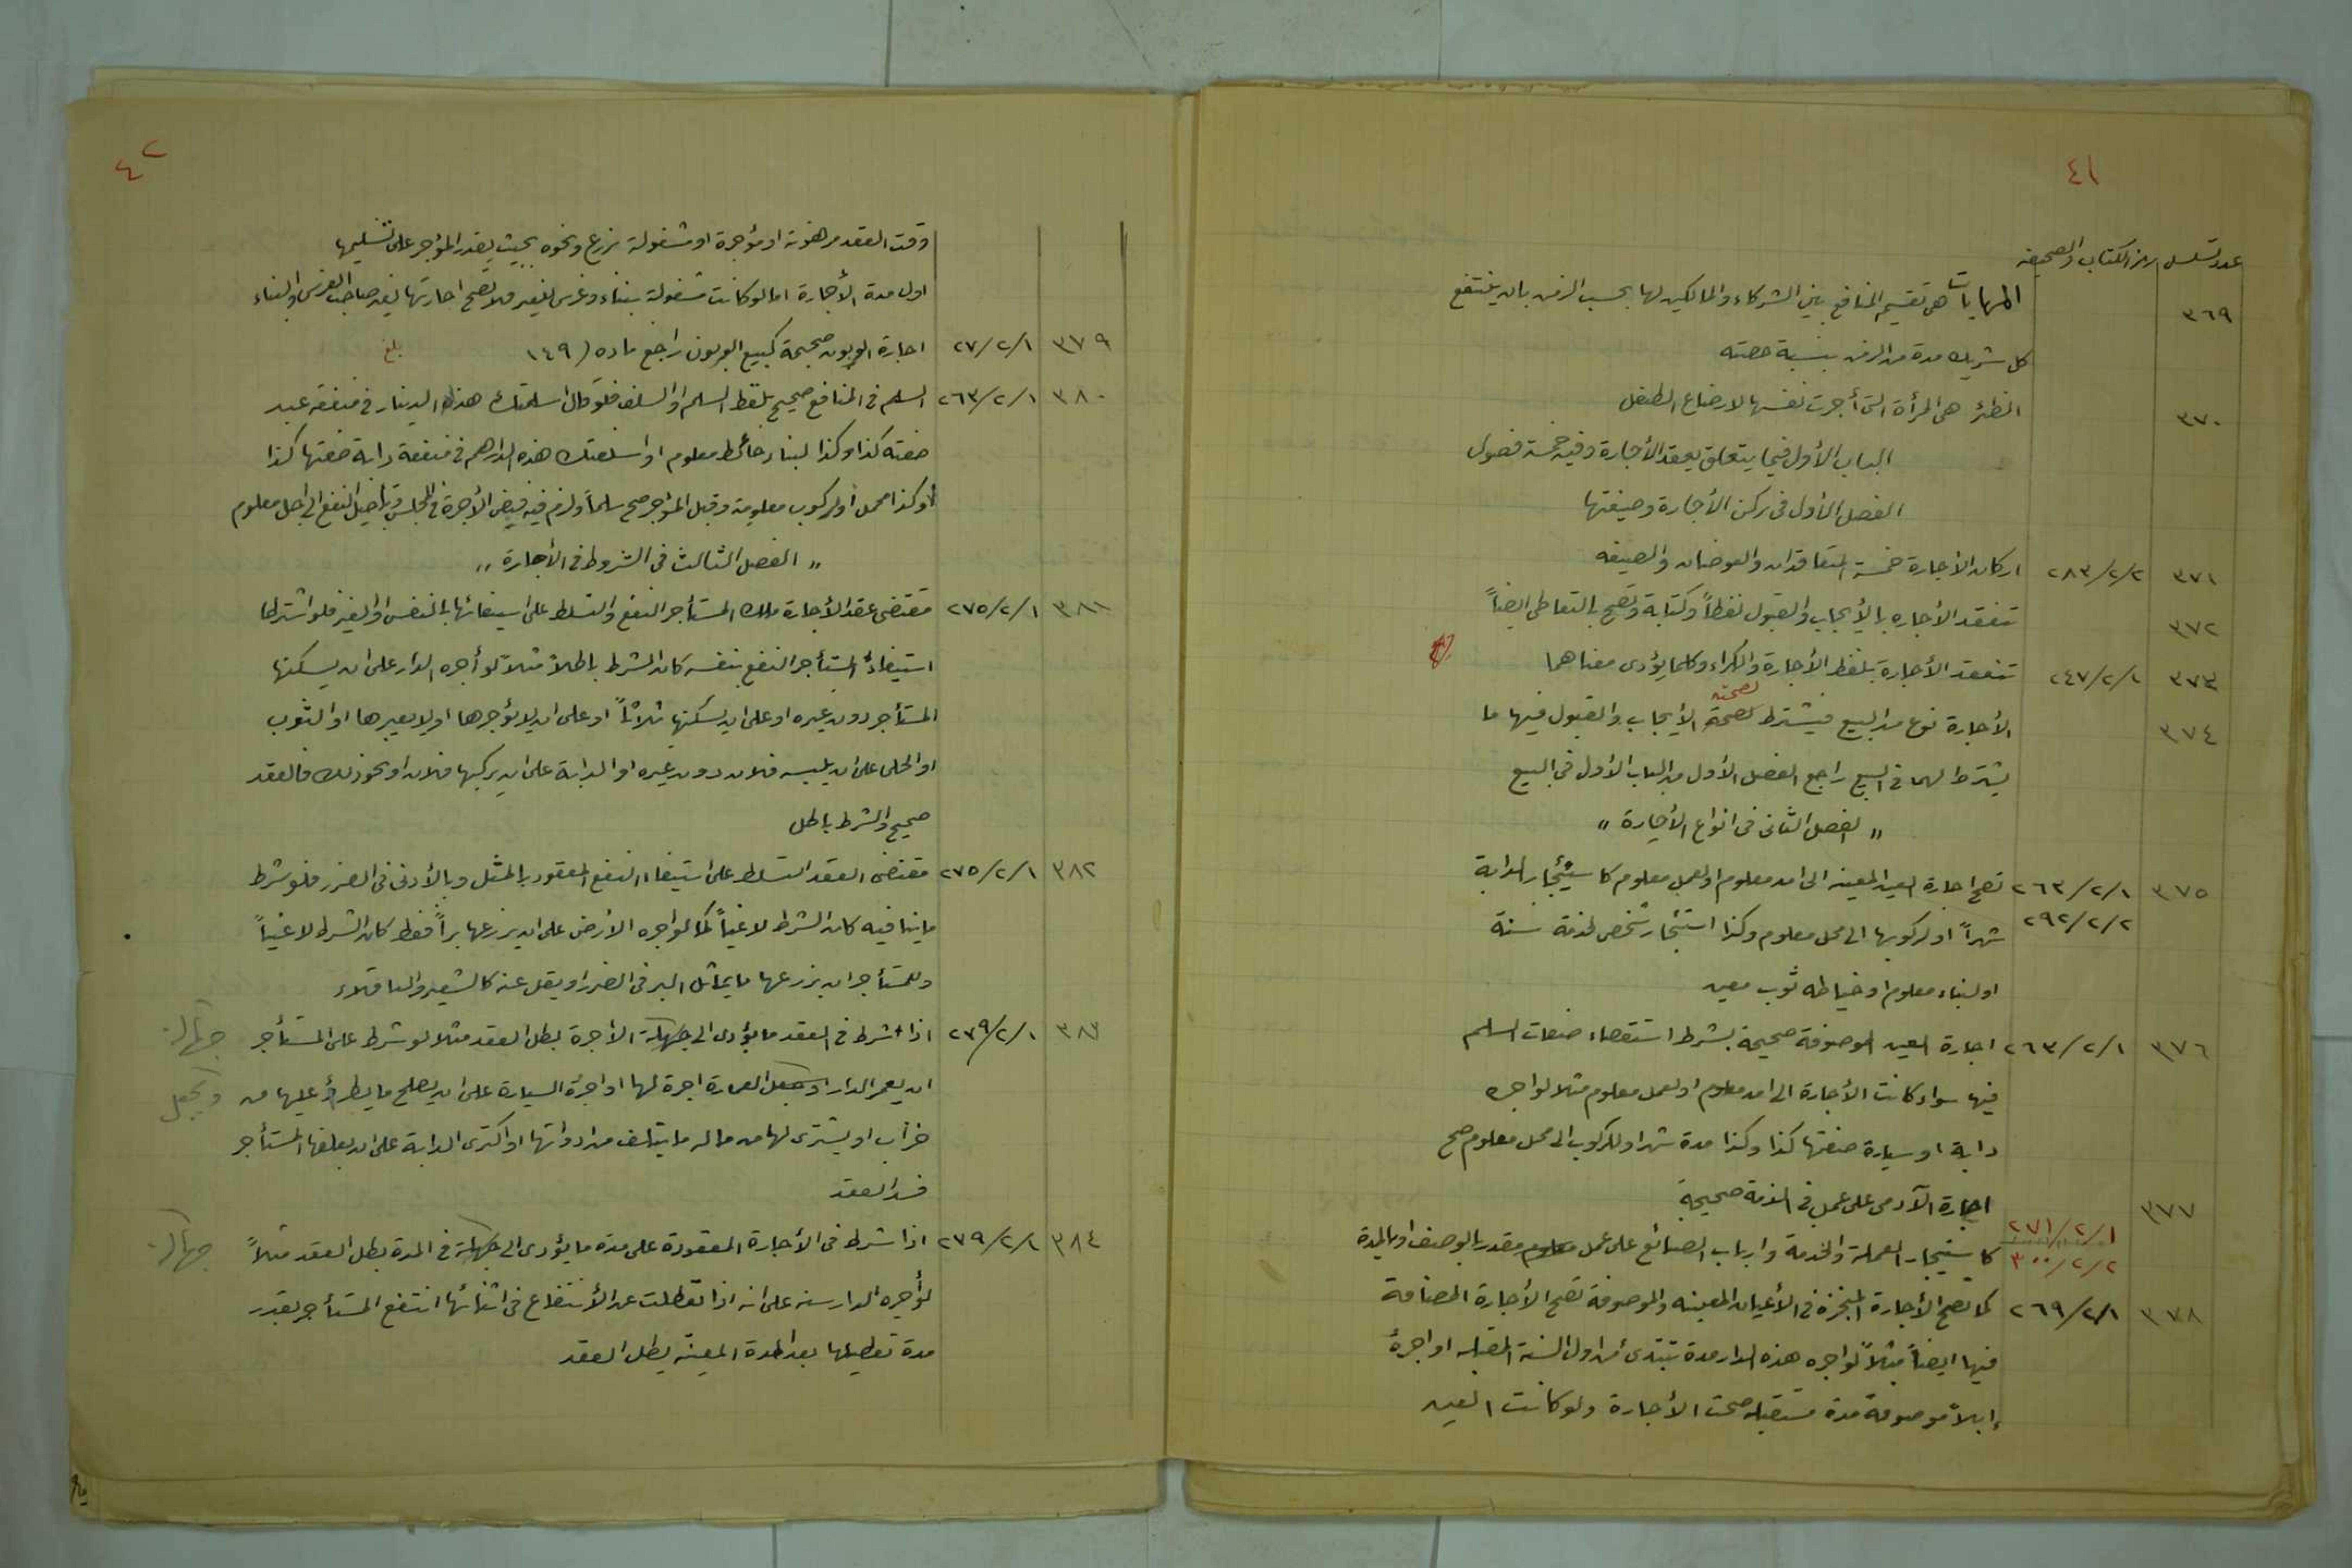 ٤١
عدد تسلسل رمز الكتاب والصحيفه
٣٦٩ المهايات هى تقسيم المنافع بين الشركاء والمالكين لها بحسب الزمن بان ينتفع
كل شريك مدة من الزمن بنسبة حصته
٣٧٠ الظئر هى المرأة التى أجرت نفسها لارضاع الطفل
الباب الأول فيما يتعلق بعقد الأجارة وفيه خمسة فصول
الفصل الأول فى ركن الأجارة وصيغتها
٣٧١ ٢٨٣/٢/٢ اركان الأجارة خمسة المتعاقدان والعوضان والصيغه
٣٧٢ تنعقد الأجاره بالأيجاب والقبول لفظاً وكتابة وتصح بالتعاطى ايضاً
٣٧٣ ٢٤٧/٢/١ تنعقد الأجارة بلفظ الأجارة والكراء وكلما يؤدى معناهما
لصحته
٣٧٤ الأجارة نوع من البيع فيشترط لصحة الأيجاب والقبول فيها ما
يشترط لهما فى البيع راجع الفصل الأول من الباب الأول فى البيع
" الفصل الثانى فى انواع الأجارة "
٣٧٥ ٢٦٣/٢/١ تصح اجارة العين المعينه الى امد معلوم او لعمل معلوم كاستئجار الدابة
٢٩٢/٢/٢ شهراً او لركوبها الى محل معلوم وكذا استئجار شخص لخدمة سنة
او لبناء معلوم او خياطه ثوب معين
٣٧٦ ٢٦٣/٢/١ اجارة العين الموصوفة صحيحة بشرط استقصاء صفات السلم
فيها سواء كانت الأجارة الى امد معلوم او لعمل معلوم مثلا لو اجره
دابة او سيارة صفتها كذا وكذا مدة شهر او للركوب الى محل معلوم صح
٣٧٧ اجارة الآدمى على عمل فى الذمة صحيحة
٢٧١/٢/١
٣٠٠/٢/٢ كاستيجار العملة والخدمة وارباب الصنائع على عمل معلوم مقدر بالوصف او بالمدة
٣٧٨ ٢٦٩/٢/١ كما تصح الأجارة المنجزة فى الأعيان المعينه والموصوفة تصح الأجارة المضافة
فيها ايضاً مثلاً لو اجره هذه الدار مدة تبتدئ من اول السنة المقبله او اجرهُ
إبلاً موصوفة مدة مستقبله صحت الأجارة ولو كانت العين
٤٢
وقت العقد مرهونة او مؤجرة او مشغولة بزرع ونحوه بحيث يقدر المؤجر على تسليمها
اول مدة الأجارة اما لو كانت مشغولة ببناء وغرس للغير فلا تصح اجارتها لغير صاحب الغرس والبناء
٣٧٩ ٢٧/٢/١ اجارة العربون صحيحة كبيع العربون راجع ماده (١٤٩ بلغ
٣٨٠ ٢٦٣/٢/١ السلم فى المنافع صحيح بلفظ السلم او السلف فلو قال اسلمتك هذا الدينار فى منفعة عبد
صفته كذا وكذا لبناء حائط معلوم او اسلفتك هذه الدراهم فى منفعة دابة صفتها كذا
او كذا لحمل او لركوب معلومة وقبل المؤجر صح سلماً ولزم فيه قبض الأجرة فى المجلس وتأجيل النفع الى اجل معلوم
" الفصل الثالث فى الشروط فى الأجارة "
٣٨١ ٢٧٥/٢/١ مقتضى عقد الأجارة ملك المستأجر النفع والتسلط على استيفائها بالنفس او الغير فلو اشترط
استيفاءُ المستأجر النفع بنفسه كان الشرط باطلاً مثلاً لو أجره الدار على ان يسكنها
المستأجر دون غيره او على ان يسكنها ثلاثاً او على ان لا يؤجرها او لا يعيرها او الثوب
او الحلى على ان يلبسه فلان دون غيره او الدابة على ان يركبها فلان او نحو ذلك فالعقد
صحيح والشرط باطل
٣٨٢ ٢٧٥/٢/١ مقتضى العقد التسلط على استيفاء النفع المعقود بالمثل وبالأدنى فى الضرر فلو شرط
ما ينافيه كان الشرط لاغياً كما لو اجره الأرض على ان يزرعها براً فقط كان الشرط لاغياً
وللمستأجر ان يزرعها ما يماثل البر فى الضرر او يقل عنه كالشعير والباقلاء
٣٨٣ ٢٧٩/٢/١ اذا اشرط فى العقد ما يؤدى الى جهالة الأجرة بطل العقد مثلا لو شرط على المستأجر جهالة
ان يعمر الدار او يجعل العمارة اجرة لها او اجرهُ السيارة على ان يصلح ما يطرأ عليها من ويجعل
خراب او يشترى لها من ماله ما يتلف من ادواتها او اكترى الدابة على ان يعلفها المستأجر
فسد العقد
٣٨٤ ٢٧٩/٢/١ اذا شرط فى الأجارة المعقودة على مدة ما يؤدى الى جهالة فى المدة بطل العقد مثلاً جهالة
لو أجره الدار سنه على انه اذا تعطلت عن الأنتفاع فى اثنائها انتفع المستأجر بقدر
مدة تعطيلها بعد المدة المعينة بطل العقد